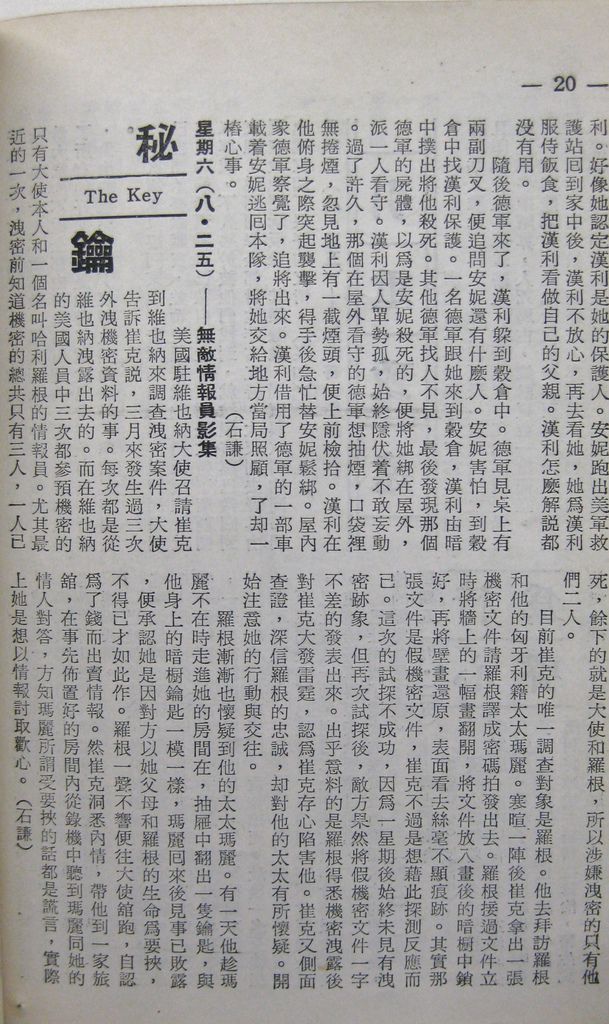 — 20 —
利。好像她認定漢利是她的保護人。安妮跑出美軍救
護站回到家中後，漢利不放心，再去看她，她爲漢利
服侍飯食，把漢利看做自己的父親。漢利怎麼解說都
没有用。
隨後德軍來了，漢利躱到穀倉中。德軍見桌上有
兩副刀叉，便追問安妮還有什麽人。安妮害怕，到穀
倉中找漢利保護。一名德軍跟她來到穀倉，漢利由暗
中撲出將他殺死。其他德軍找人不見，最後發現那個
德軍的屍體，以爲是安妮殺死的，便將她綁在屋外，
派一人看守。漢利因人單勢孤，始終隱伏着不敢妄動
。過了許久，那個在屋外看守的德軍想抽煙，口袋裡
無捲煙，忽見地上有一截煙頭，便上前檢拾。漢利在
他俯身之際突起襲擊，得手後急忙替安妮鬆綁。屋內
衆德軍察覺了，追將出來。漢利借用了德軍的一部車
載着安妮逃囘本隊，將她交給地方當局照顧，了却一
樁心事。
（石謙）
星期六（八・二五）——無敵情報員影集
秘
The Key
鑰
美國駐維也納大使召請崔克
到維也納來調查洩密案件，大使
告訴崔克説，三月來發生過三次
外洩機密資料的事。每次都是從
維也納洩露出去的。而在維也納
的美國人員中三次都參預機密的
只有大使本人和一個名叫哈利羅根的情報員。尤其最
近的一次，洩密前知道機密的總共只有三人，一人已
死，餘下的就是大使和羅根，所以涉嫌洩密的只有他
們二人。
目前崔克的唯一調查對象是羅根。他去拜訪羅根
和他的匈牙利籍太太瑪麗。寒喧一陣後崔克拿出一張
機密文件請羅根譯成密碼拍發出去。羅根接過文件立
時將牆上的一幅畫翻開，將文件放入畫後的暗櫥中鎖
好，再將壁畫還原，表面看去絲毫不顯痕跡。其實那
張文件是假機密文件，崔克不過是想藉此探測反應而
已。這次的試探不成功，因爲一星期後始終未見有洩
密跡象，但再次試探後，敵方畀然將假機密文件一字
不差的發表出來。出乎意料的是羅根得悉機密洩露後
對崔克大發雷霆，認爲崔克存心陷害他。崔克又側面
查證，深信羅根的忠誠，却對他的太太有所懷疑。開
始注意她的行動與交往。
羅根漸漸也懷疑到他的太太瑪麗。有一天他趁瑪
麗不在時走進她的房間在，抽屜中翻出一隻鑰匙，與
他身上的暗櫥鑰匙一模一樣，瑪麗回來後見事已敗露
，便承認她是因對方以她父母和羅根的生命爲要挾，
不得已才如此作。羅根一聲不響便往大使舘跑，自認
爲了錢而出賣情報。然崔克洞悉內情，帶他到一家旅
舘，在事先佈置好的房間內從錄機中聽到瑪麗同她的
情人對答，方知瑪麗所謂受要挾的話都是謊言，實際
上她是想以情報討取歡心。（石謙）